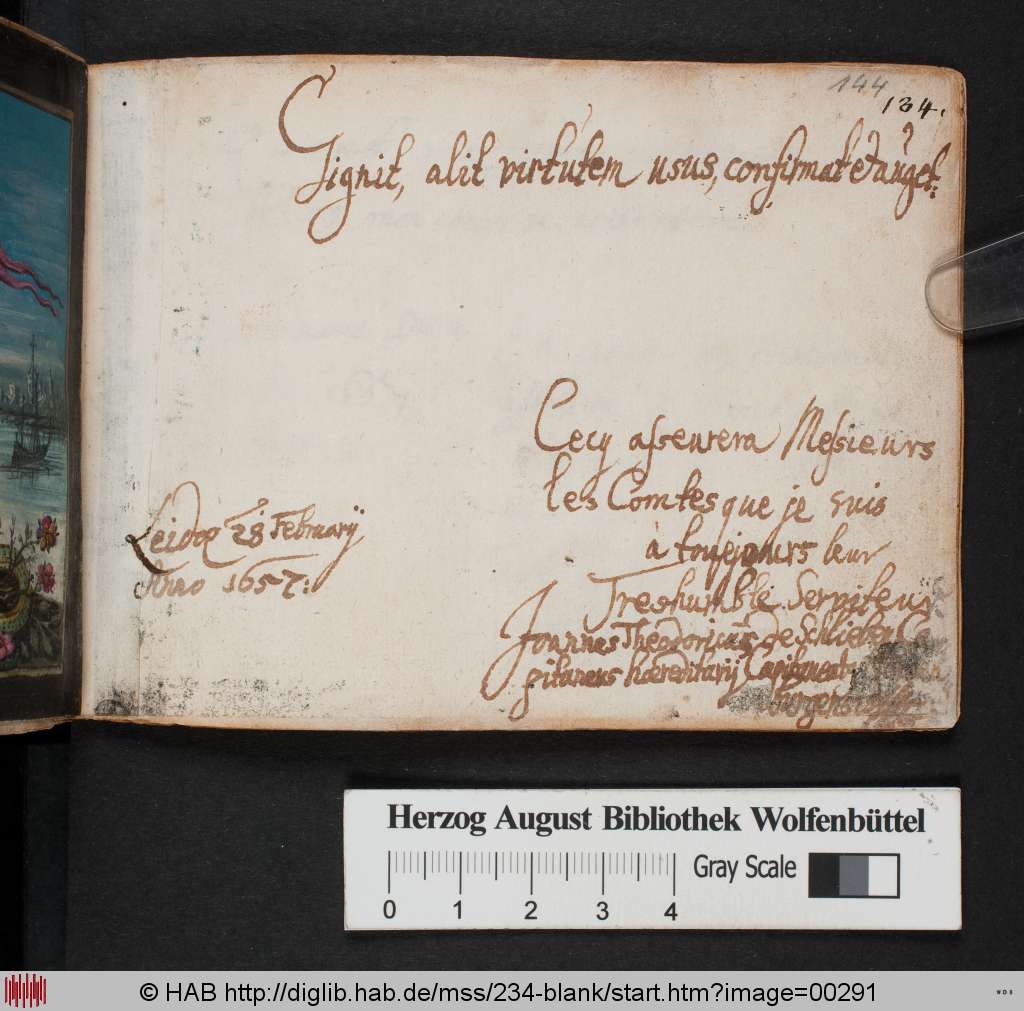 144
134.
Gignit, alit virtutem usus, confirmat et auget.
Cecy asseurera Messieurs
les Comtes que je suis
a tousjours leur
Treshumble Serviteur
Joannes Theodoricus de Schlieben Ca-
pitaneus hæreditarij Capitaneat
Leidæ 28 Februarij
Anno 1657:
Herzog August Bibliothek Wolfenbüttel
Gray Scale
0 1 2 3 4
© HAB http://diglib.hab.de/mss/234-blank/start.htm?image=00291